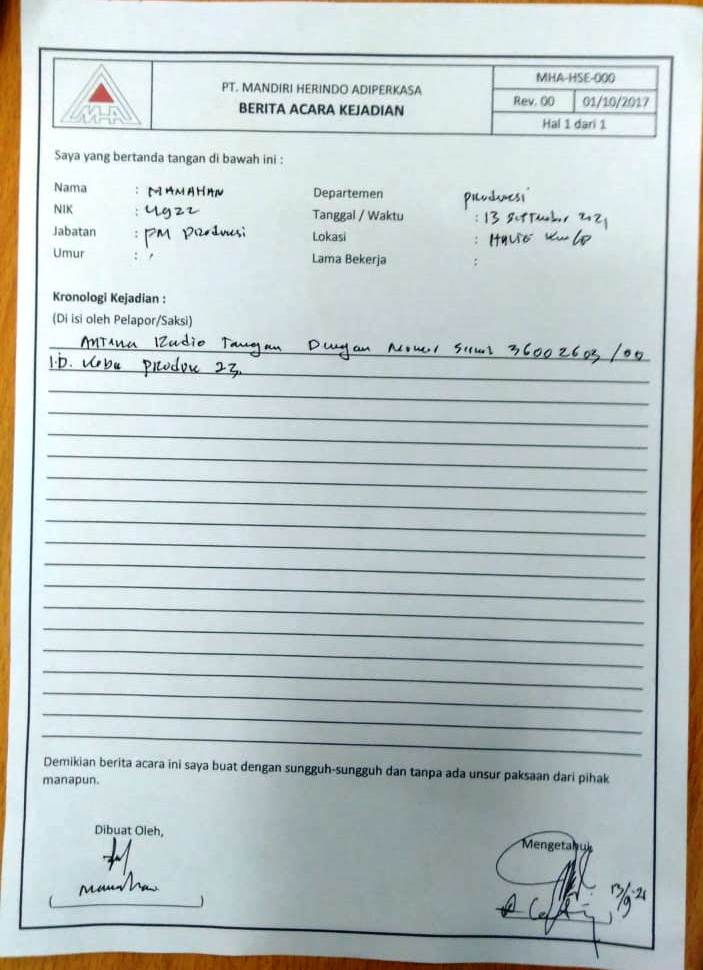 MHA
PT. MANDIRI HERINDO ADIPERKASA
BERITA ACARA KEJADIAN
MHA-HSE-000
Rev. 00 01/10/2017
Hal 1 dari 1
Saya yang bertanda tangan di bawah ini :
Nama : MAMAHAN Departemen produksi
NIK : 4922 Tanggal / Waktu : 13 September 2021
Jabatan : PM Produksi Lokasi :
Umur : Lama Bekerja :
Kronologi Kejadian :
(Di isi oleh Pelapor/Saksi)
ANTANA Radio Tangan Dengan Nomer 36002603/00
I.D. Produk 23.
Demikian berita acara ini saya buat dengan sungguh-sungguh dan tanpa ada unsur paksaan dari pihak
manapun.
Dibuat Oleh,
Mengetahui,
13/9-21